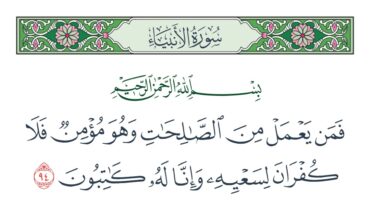 سُورَةُ الأَنْبِيَاءِ
بِسْمِ اللَّهِ الرَّحْمَٰنِ الرَّحِيمِ
فَمَن يَعْمَلْ مِنَ ٱلصَّٰلِحَٰتِ وَهُوَ مُؤْمِنٌ فَلَا
كُفْرَانَ لِسَعْيِهِۦ وَإِنَّا لَهُۥ كَٰتِبُونَ ٩٤